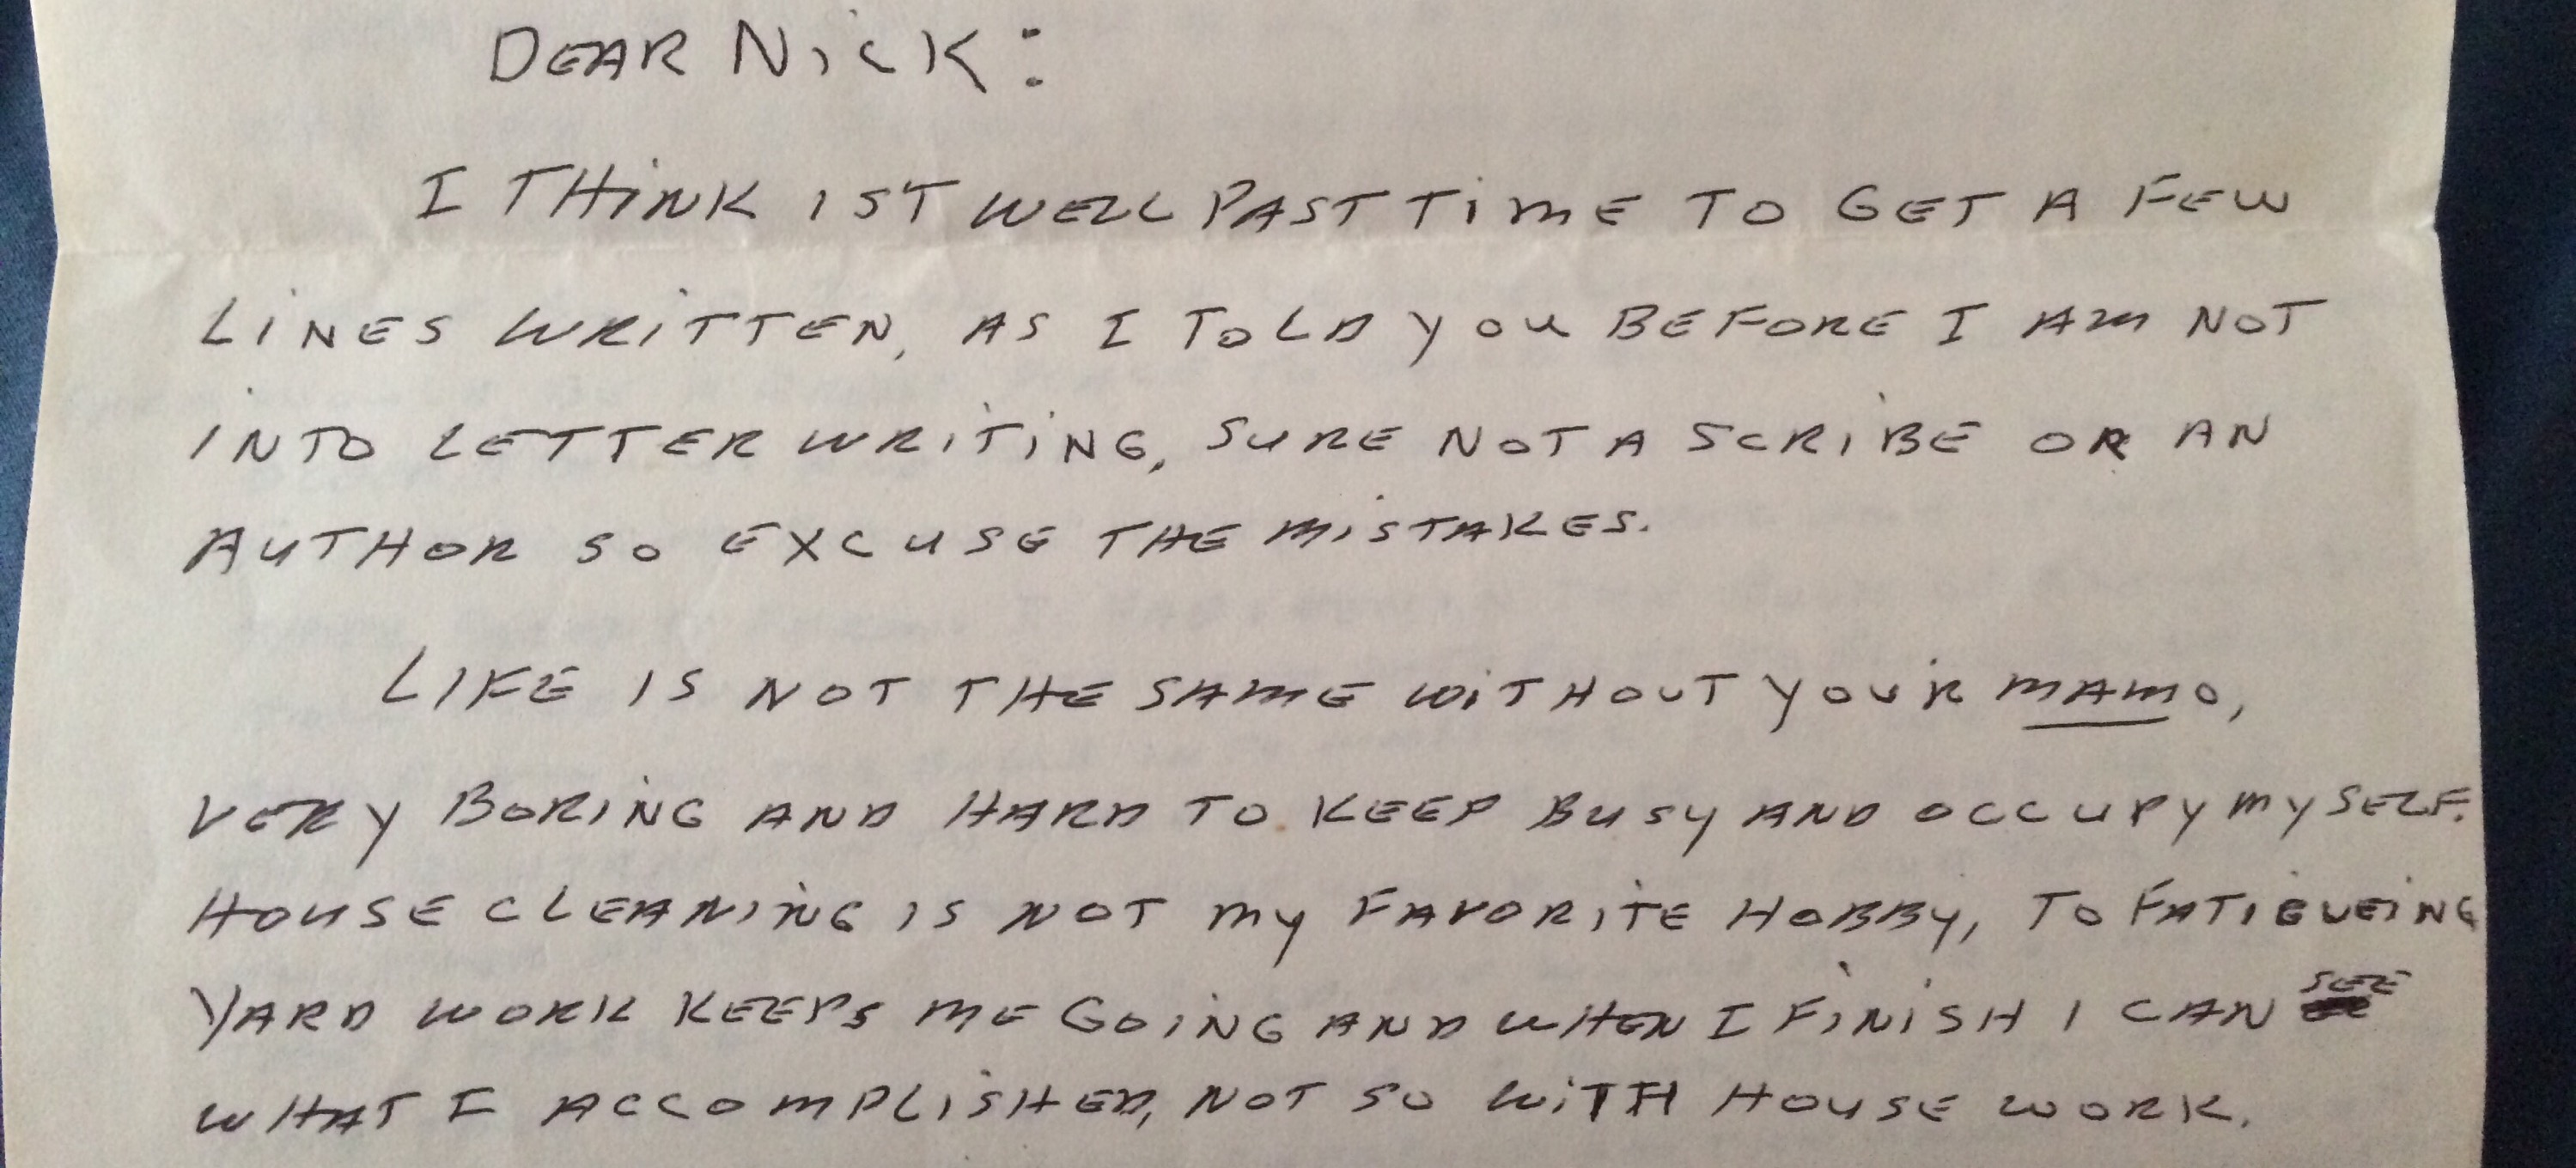 DEAR NICK:
I THINK IST WELL PAST TIME TO GET A FEW
LINES WRITTEN, AS I TOLD YOU BEFORE I AM NOT
INTO LETTER WRITING, SURE NOT A SCRIBE OR AN
AUTHOR SO EXCUSE THE MISTAKES.
LIFE IS NOT THE SAME WITHOUT YOUR MAMO,
VERY BORING AND HARD TO KEEP BUSY AND OCCUPY MYSELF.
HOUSE CLEANING IS NOT MY FAVORITE HOBBY, TO FATIGUEING
YARD WORK KEEPS ME GOING AND WHEN I FINISH I CAN SEE
WHAT I ACCOMPLISHED, NOT SO WITH HOUSE WORK.